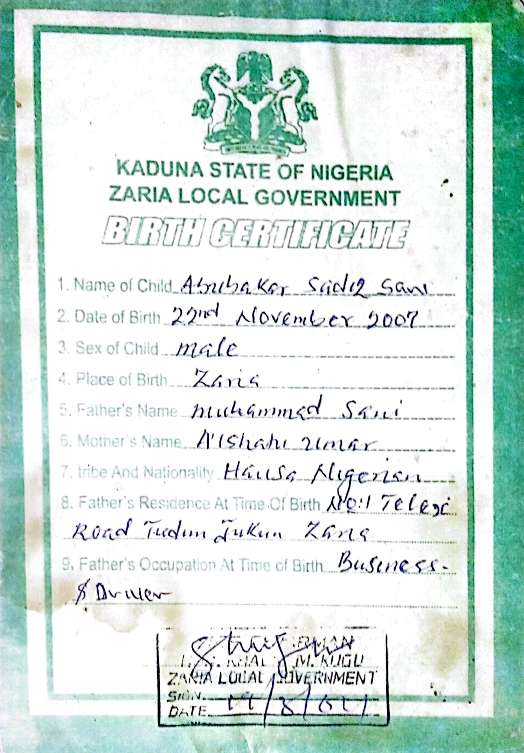 KADUNA STATE OF NIGERIA
ZARIA LOCAL GOVERNMENT
BIRTH CERTIFICATE
1. Name of Child Abubakar Sadiq Sani
2. Date of Birth 22nd November 2007
3. Sex of Child male
4. Place of Birth Zaria
5. Father's Name muhammad Sani
6. Mother's Name A'ishatu umar
7. tribe And Nationality Hausa Nigerian
8. Father's Residence At Time Of Birth No:1
Road Tudun Jukun Zaria
9. Father's Occupation At Time of Birth Business-
& Driver
M. KUGU
ZARIA LOCAL GOVERNMENT
SIGN.
DATE